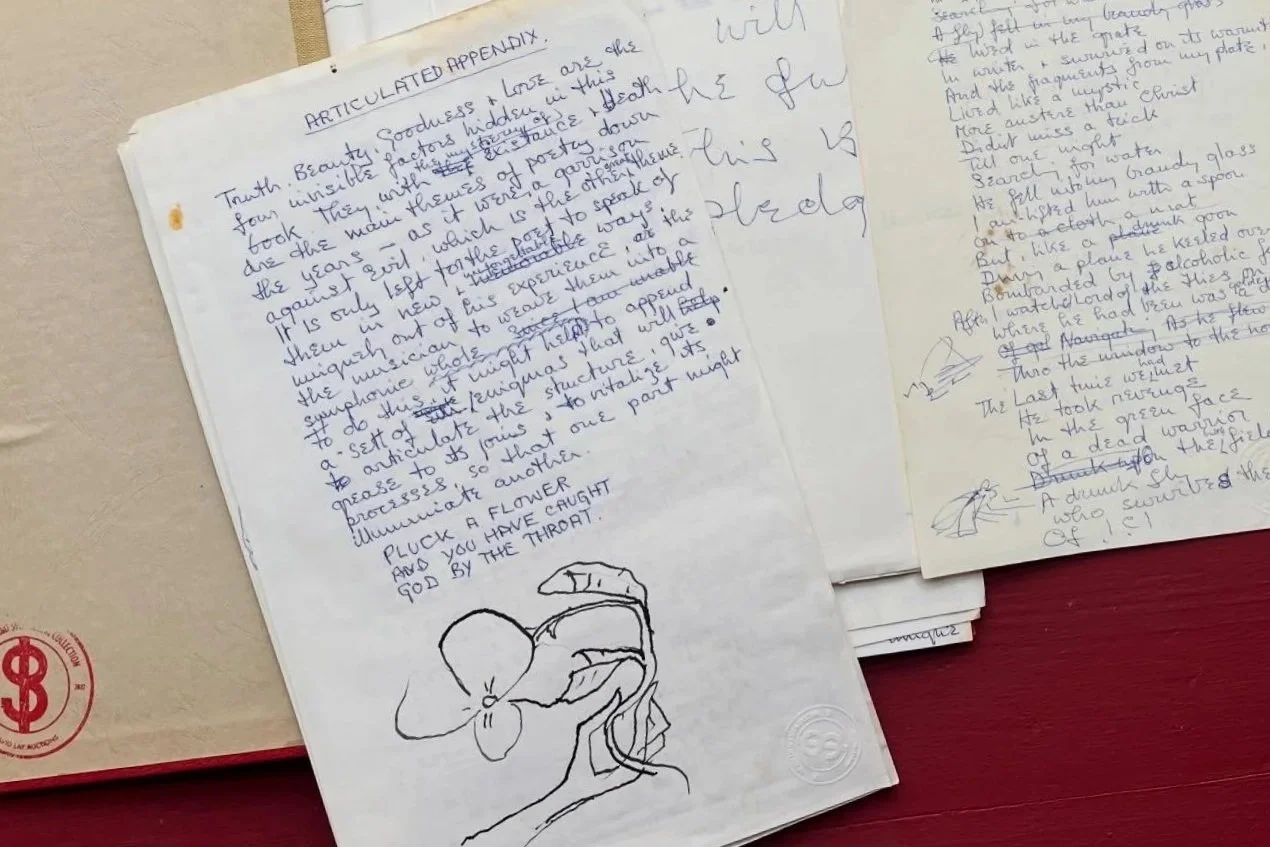 ARTICULATED APPENDIX.
Truth. Beauty. Goodness & Love are the
four invisible factors hidden in this
book. They with the mystery of existance & death
are the main themes of poetry down
the years – as it were a garrison
against Evil, which is the other great theme
It is only left for the poet to speak of
them in new & unforgettable memorable ways
uniquely out of his experience, as the
the musician to weave them into a
symphonic whole. Since I am unable
to do this it might help to append
a sett of enigmas that will help
to articulate the structure, give
grease to its joins & to vitalize its
processes, so that one part might
illuminate another.
PLUCK A FLOWER
AND YOU HAVE CAUGHT
GOD BY THE THROAT.
will
he
This is
pledg
unique
Searching for
A fly fell in my brandy glass
He lived in the grate
In winter & survived on its warmt
And the fragments from my plate,
Lived like a mystic
More austere than Christ
Didnt miss a trick
Till one night
Searching for water
He fell into my brandy glass
I lifted him with a spoon
on to a cloth a mat
But, like a drunk goon
Diving a plane he keeled over
Bombarded by alcoholic
After I watched lord of the flies
where he had been was a
As he flew
Thro the window to the
The Last time we had met
He took revenge
In the green face
of a dead warrior
Drunk upon the field
A drunk fly
who survived the
Of I.C.I
COLLECTION
DAVID LAY AUCTIONS